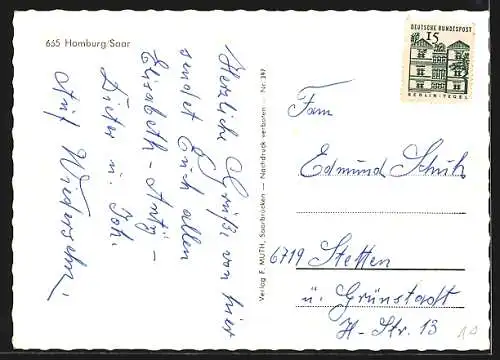 665 Homburg/Saar
Herzliche Grüße von hier
sendet Euch allen
Elisabeth - Antj -
Dieter u. Joh.
Auf Wiedersehn!
Verlag F. MUTH, Saarbrücken — Nachdruck verboten — Nr. 397
DEUTSCHE BUNDESPOST
15
BERLIN-TEGEL
Fam
Edmund Schuh
6719 Stetten
ü. Grünstadt
H-Str. 13